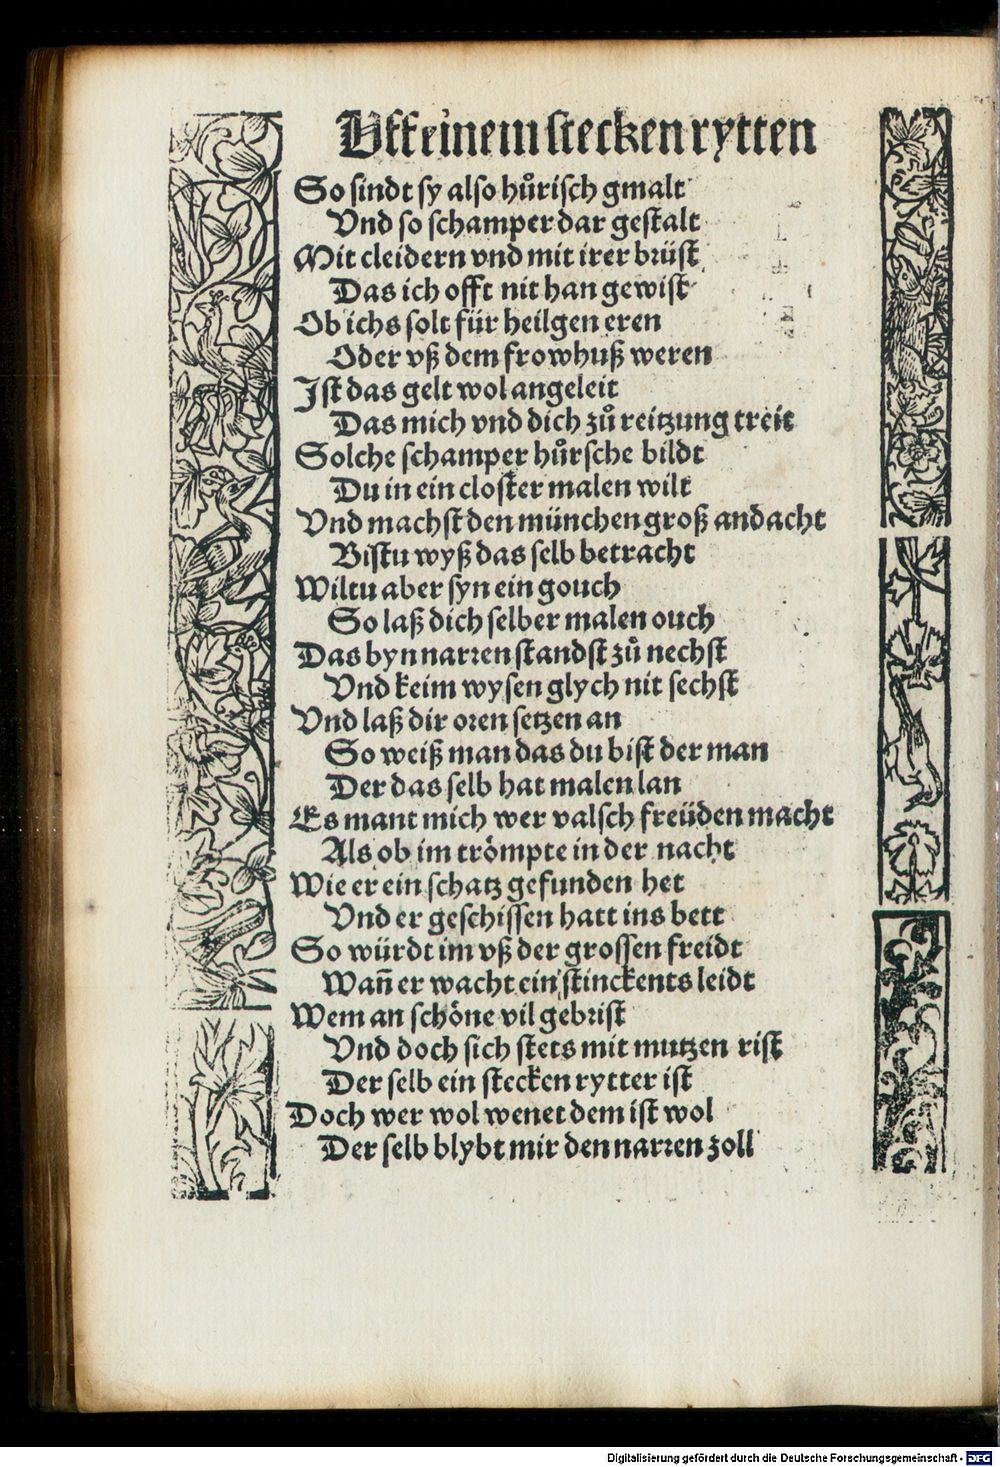 Uff einem stecken rytten
So sindt sy also hůrisch gmalt
Vnd so schamper dar gestalt
Mit cleidern vnd mit irer brüst
Das ich offt nit han gewist
Ob ichs solt für heilgen eren
Oder vß dem frowhuß weren
Jst das gelt wol angeleit
Das mich vnd dich zů reitzung treit
Solche schamper hůrsche bildt
Du in ein closter malen wilt
Vnd machst den münchen groß andacht
Bistu wyß das selb betracht
Wiltu aber syn ein gouch
So laß dich selber malen ouch
Das by n narren standst zů nechst
Vnd keim wysen glych nit sechst
Vnd laß dir oren setzen an
So weiß man das du bist der man
Der das selb hat malen lan
Es mant mich wer valsch freüden macht
Als ob im trömpte in der nacht
Wie er ein schatz gefunden het
Vnd er geschissen hatt ins bett
So würdt im vß der grossen freidt
Wañ er wacht ein stinckents leidt
Wem an schöne vil gebrist
Vnd doch sich stets mit mutzen rist
Der selb ein stecken rytter ist
Doch wer wol wenet dem ist wol
Der selb blybt mir den narren zoll
Digitalisierung gefördert durch die Deutsche Forschungsgemeinschaft - DFG